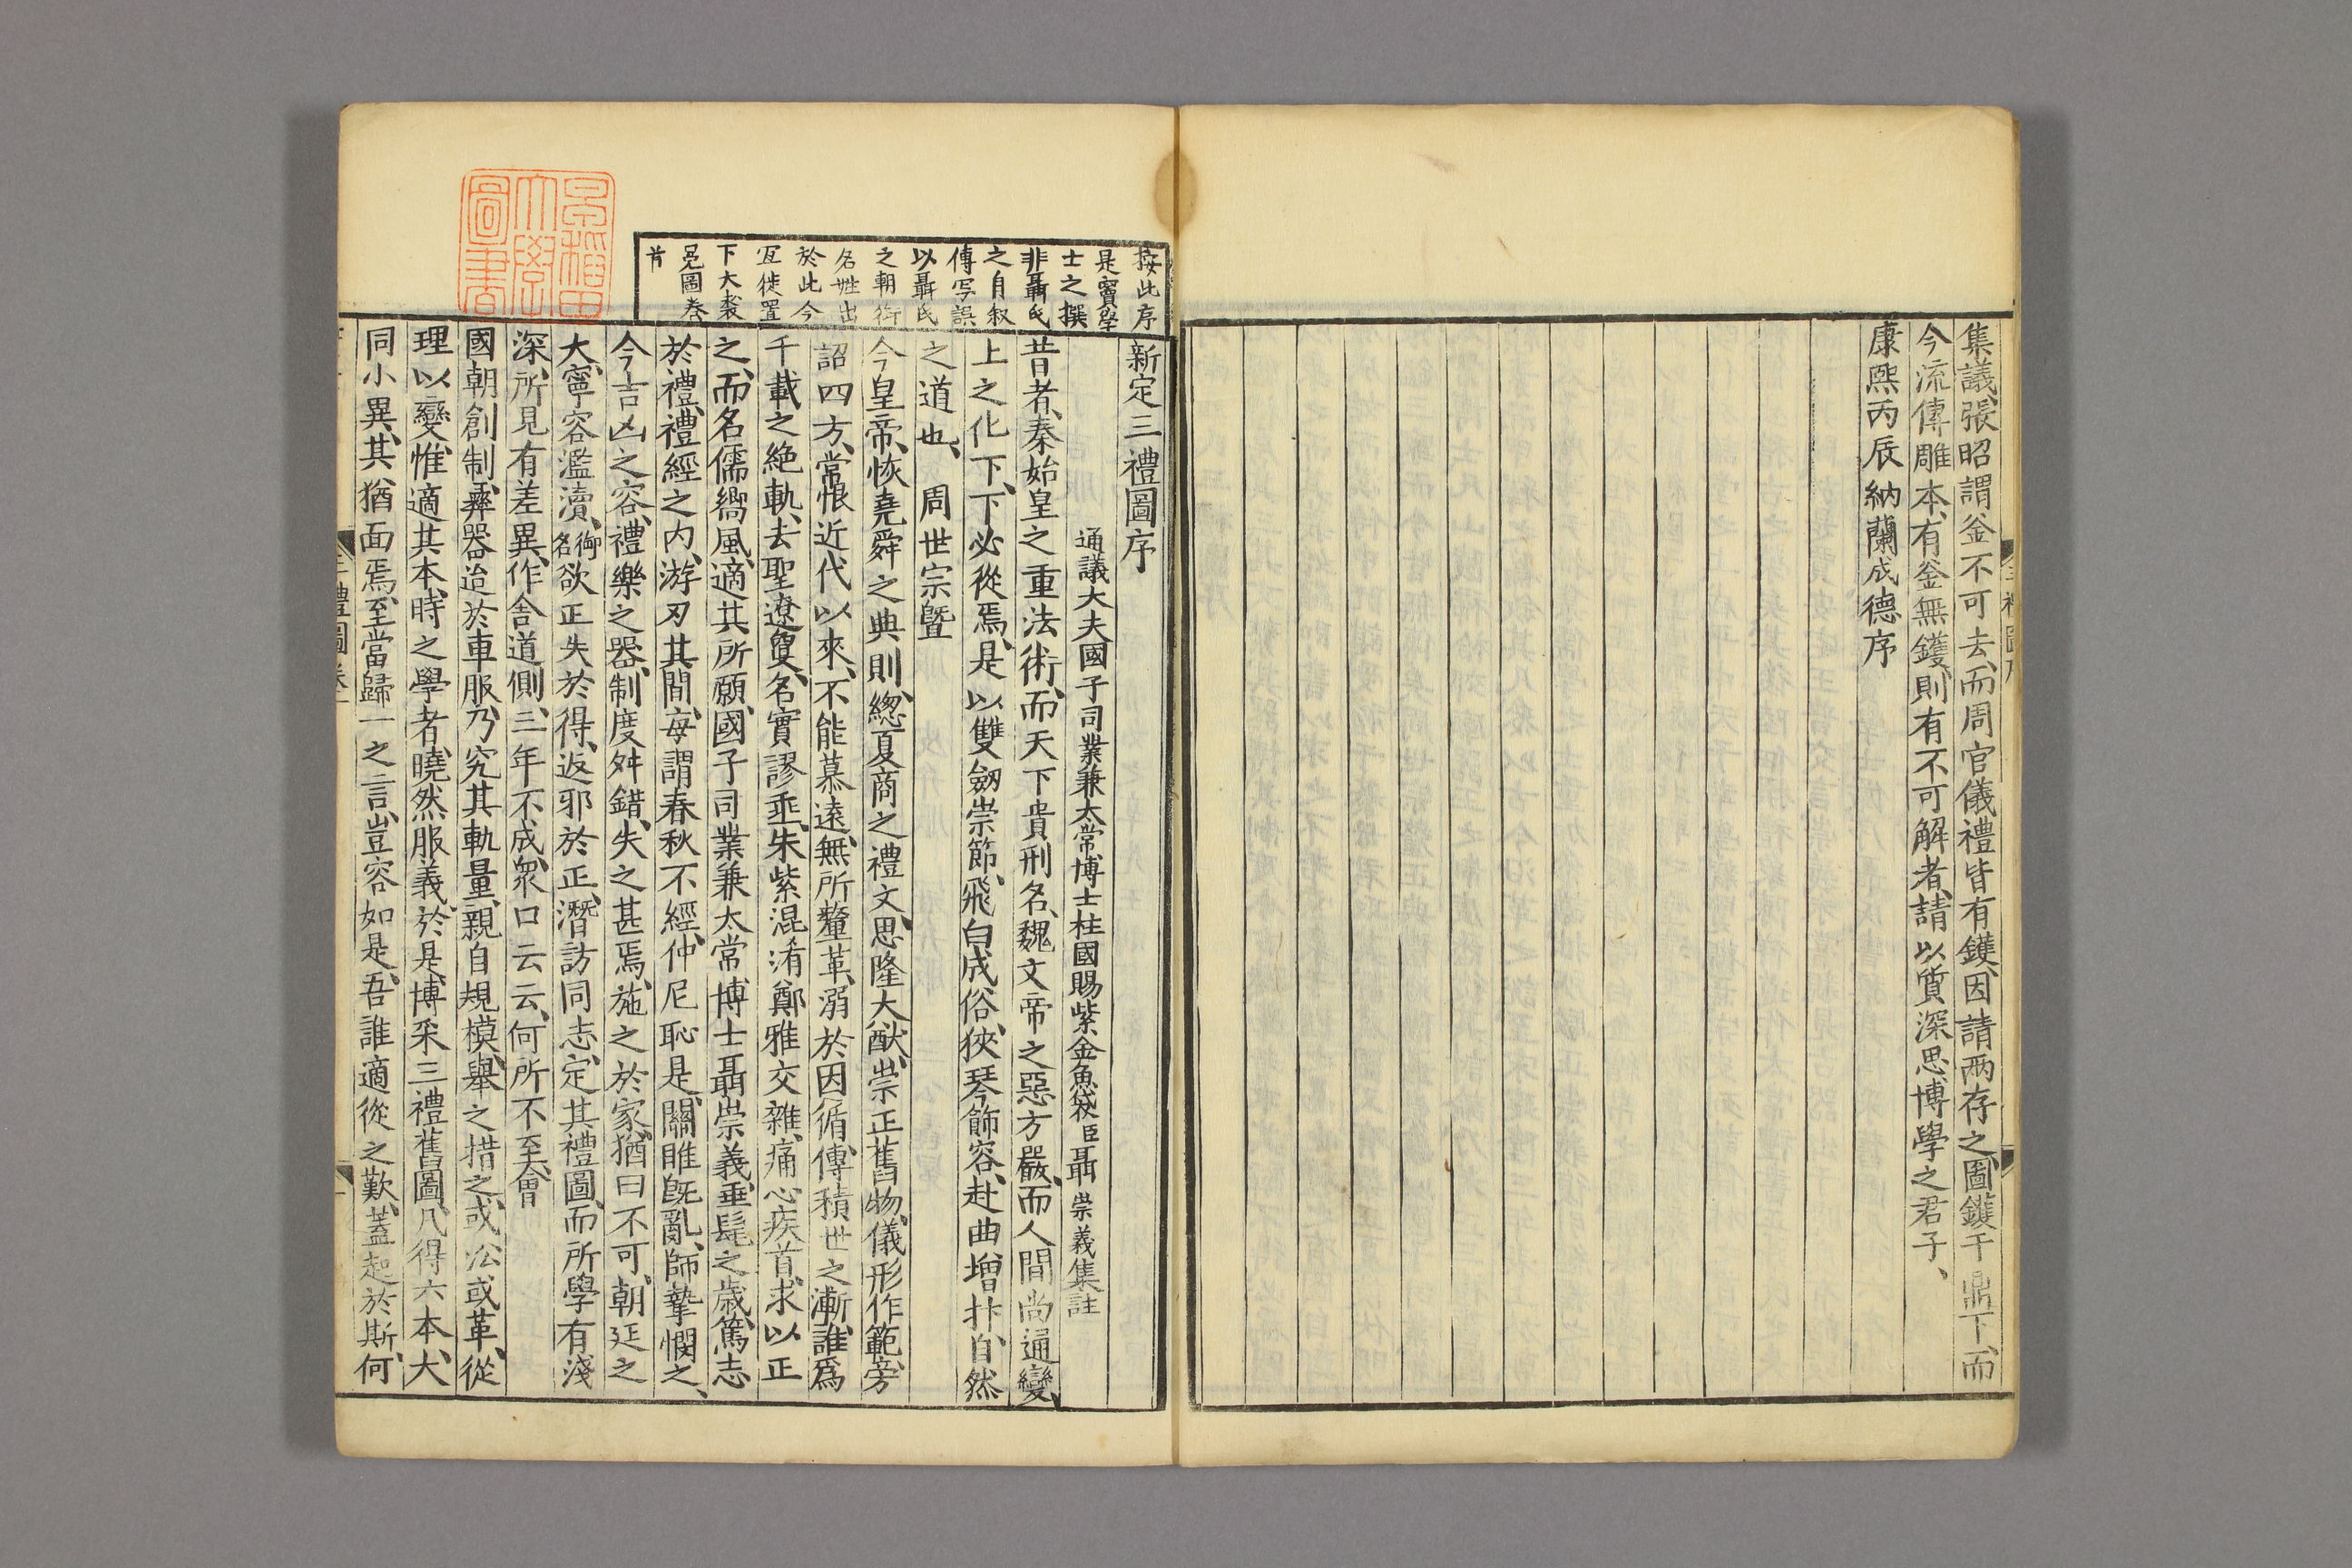 集議、張昭謂釜不可去、而周官儀禮皆有鑊、因請兩存之、圖鑊于鼎下、而
今流傳雕本、有釜無鑊、則有不可解者、請以質深思博學之君子、
康熙丙辰納蘭成德序
按此序
是竇學
士之撰
非聶氏
之自叙
傳写誤
以聶氏
之朝銜
名姓出
於此今
冝徙置
下大裘
冕圖卷
首
新定三禮圖序
通議大夫國子司業兼太常博士柱國賜紫金魚袋臣聶崇義集註
昔者、秦始皇之重法術、而天下貴刑名、魏文帝之惡方嚴、而人間尚通變、
上之化下、下必從焉、是以雙劒崇節、飛白成俗、狹琴飾容、赴曲增抃、自然
之道也、周世宗曁
今皇帝、恢堯舜之典則、緫夏商之禮文、思隆大猷、崇正舊物、儀形作範、旁
詔四方、常恨近代以來、不能慕遠、無所釐革、溺於因循、傳積世之漸、誰爲
千載之絶軌、去聖遼敻、名實謬乖、朱紫混淆、鄭雅交雜、痛心疾首、求以正
之、而名儒嚮風、適其所願、國子司業兼太常博士聶崇義、垂髦之歲、篤志
於禮、禮經之内、游刃其間、每謂春秋不經、仲尼恥是、關雎既亂、師摯憫之、
今吉凶之容、禮樂之器、制度舛錯、失之甚焉、施之於家、猶曰不可、朝廷之
大、寧容濫瀆、御名欲正失於得、返邪於正、潛訪同志、定其禮圖、而所學有淺
深、所見有差異、作舍道側、三年不成、衆口云云、何所不至、會
國朝創制彝器、迨於車服、乃究其軌量、親自規模、舉之措之、或沿或革、從
理以變、惟適其本、時之學者、曉然服義、於是、博采三禮舊圖、凡得六本、大
同小異、其猶面焉、至當歸一之言、豈容如是、吾誰適從之歎、蓋起於斯、何
三禮圖卷一
早稲田
大學
圖書